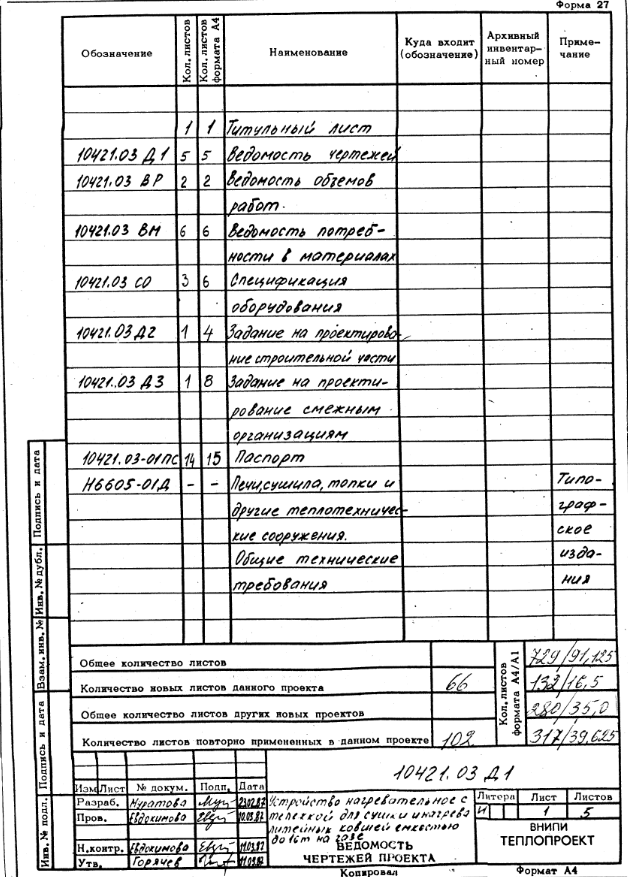 Форма 27
Обозначение Кол. листов Кол. листов формата А4 Наименование Куда входит (обозначение) Архивный инвентар-ный номер Приме-чание
1 1 Титульный лист
10421.03 Д1 5 5 Ведомость чертежей
10421.03 ВР 2 2 Ведомость объемов
работ.
10421.03 ВМ 6 6 Ведомость потреб-
ности в материалах
10421.03 СО 3 6 Спецификация
оборудования
10421.03 Д2 1 4 Задание на проектирова-
ние строительной части
10421.03 Д3 1 8 Задание на проекти-
рование смежным
организациям
10421.03-01ПС 14 15 Паспорт
Н6605-01Д - - Печи, сушила, топки и Типо-
другие теплотехничес- граф-
кие сооружения. ское
Общие технические изда-
требования ния
Общее количество листов 729/91,125
Количество новых листов данного проекта 66 132/16,5
Общее количество листов других новых проектов 280/35,0
Количество листов повторно примененных в данном проекте 102 317/39,625
Кол. листов формата А4/А1
Подпись и дата
Инв. № дубл.
Взам. инв. №
Подпись и дата
Инв. № подл.
10421.03 Д1
Изм Лист № докум. Подп. Дата
Разраб. Муратова
Пров. Евдокимова
Н.контр. Евдокимова
Утв. Горячев
Устройство нагревательное с
тележкой для сушки и нагрева
литейных ковшей емкостью
до 16т на газе
ВЕДОМОСТЬ
ЧЕРТЕЖЕЙ ПРОЕКТА
Литера Лист Листов
И 1 5
ВНИПИ
ТЕПЛОПРОЕКТ
Копировал Формат А4